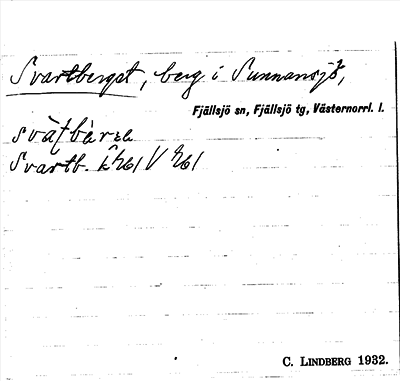 Svartberget, berg i Sunnansjö,
Fjällsjö sn, Fjällsjö tg, Västernorrl. l.
Svartb.
C. LINDBERG 1932.